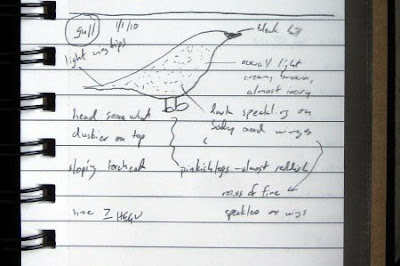 gull 1/1/10
black bill
light wingtips
overall light
creamy brown,
almost ivory
dark speckling on
body and wings
head somewhat
duskier on top
sloping forehead
pinkish legs - almost reddish
rows of fine
speckles on wings
size I HEGU